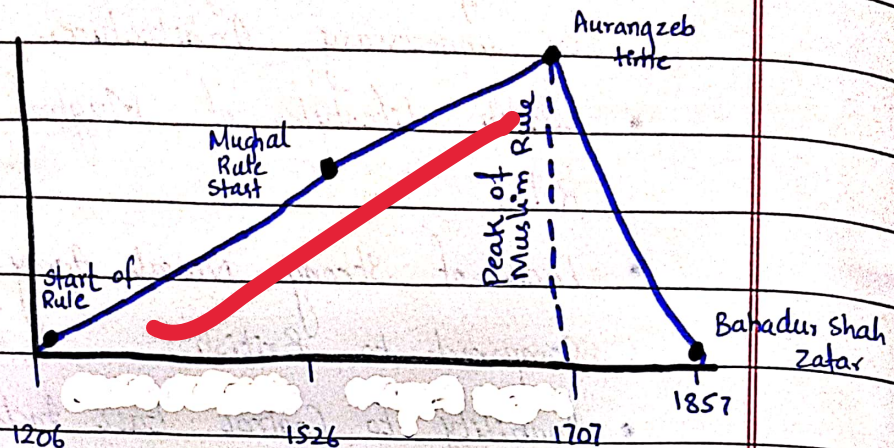 Aurangzeb
time
Mughal
Rule
Start
Peak of
Muslim Rule
Start of
Rule
Bahadur Shah
Zafar
1206
1526
1707
1857